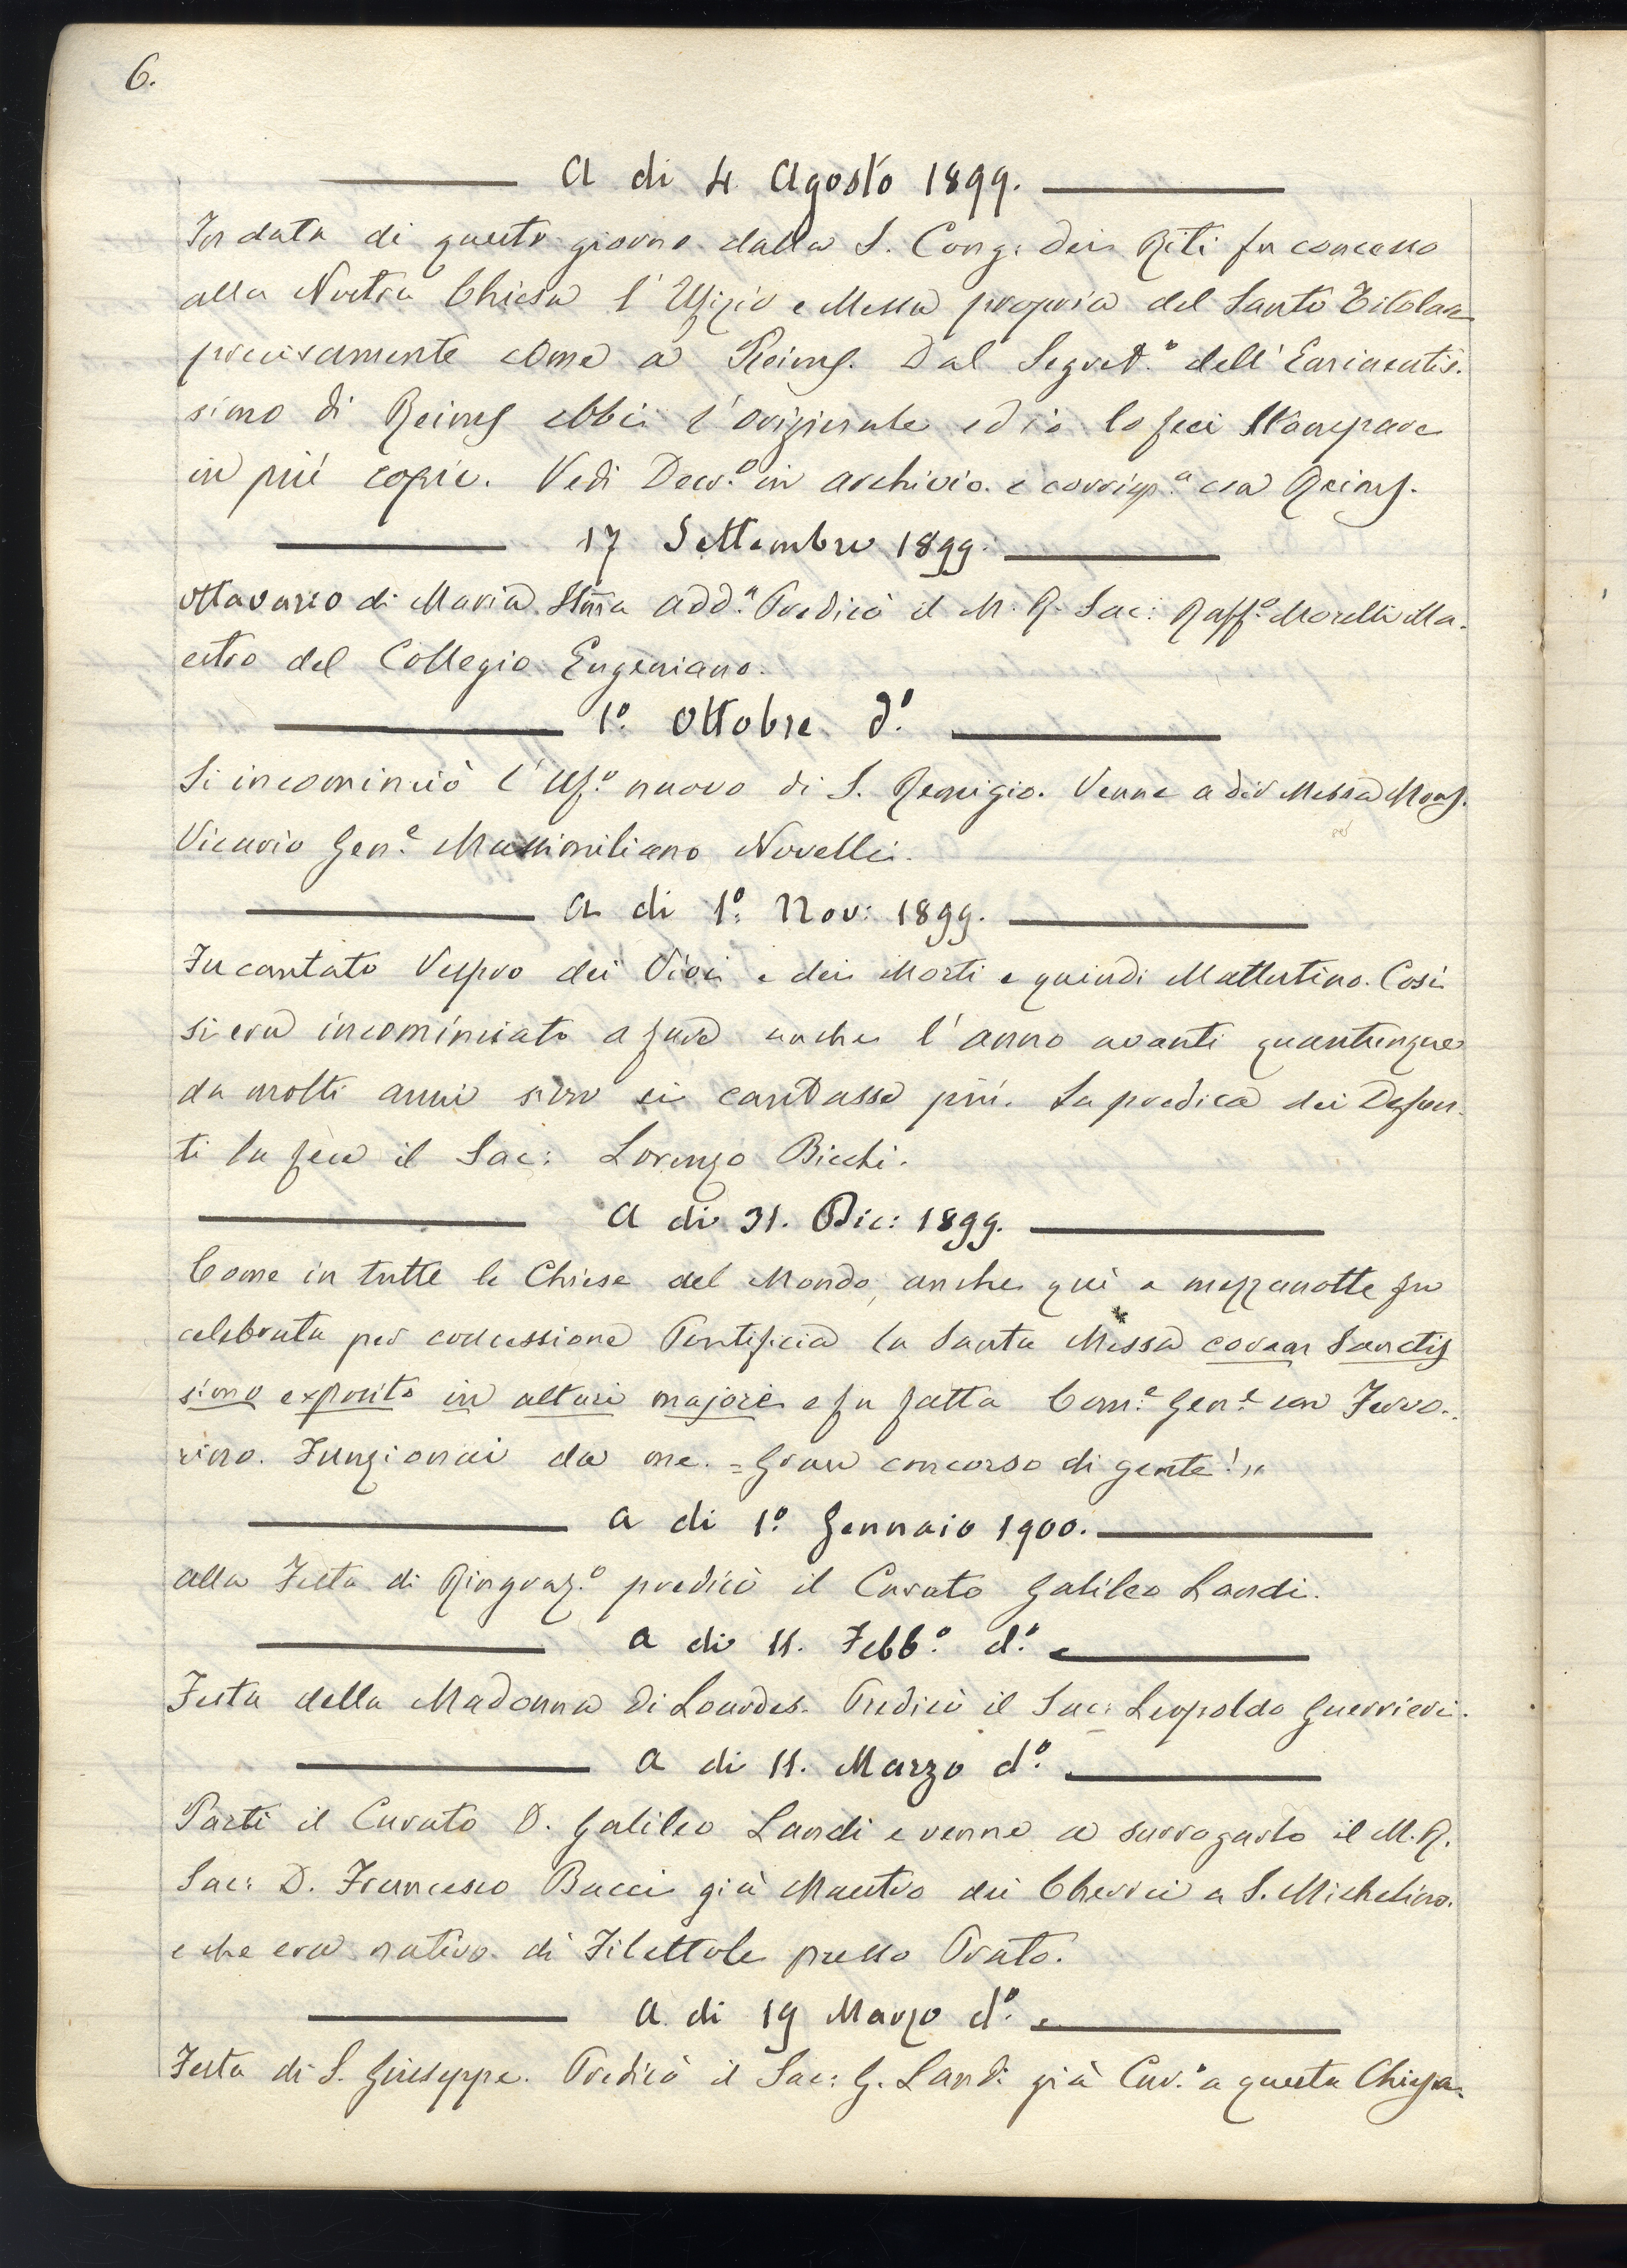 6.
A di 4 Agosto 1899.
In data di questo giorno dalla S. Cong: dei Riti fu concesso
alla Nostra Chiesa l'Ufizio e Messa propria del Santo Titolare
precisamente come a Reims. Dal Segret.º dell'Eminentis.
simo di Reims ebbi l'originale ed io lo feci stampare
in più copie. Vedi Decr.º in archivio e corrisp.ª con Reims.
17 Settembre 1899.
Ottavario di Maria SSma Add.ª Predicò il M. R. Sac: Raff.º Morelli Ma.
estro del Collegio Eugeniano.
1º Ottobre d.º
Si incominciò l'Uf.º nuovo di S. Remigio. Venne a dir Messa Mons.
Vicario Gen.e Massimiliano Novelli.
A di 1º Nov: 1899.
Fu cantato Vespro dei Vivi e dei Morti e quindi Mattutino. Così
si era incominciato a fare anche l'anno avanti quantunque
da molti anni non si cantasse più. La predica dei Defun.
ti la fece il Sac: Lorenzo Bicchi.
A di 31. Dic: 1899.
Come in tutte le Chiese del Mondo, anche quì a mezzanotte fu
celebrata per concessione Pontificia la Santa Messa coram Sanctis
simo exposito in altari majori e fu fatta Com.e Gen.e con Fervo.
rino. Funzionai da me. = Gran concorso di gente! "
A di 1º Gennaio 1900.
Alla Festa di Ringraz.º predicò il Curato Galileo Landi.
A di 11. Febb.º d.º
Festa della Madonna di Lourdes. Predicò il Sac: Leopoldo Guerrieri.
A di 11. Marzo d.º
Partì il Curato D. Galileo Landi e venne a surrogarlo il M. R.
Sac: D. Francesco Bacci già Maestro dei Cherici a S. Michelino.
e che era nativo di Filettole presso Prato.
A di 19 Marzo d.º
Festa di S. Giuseppe. Predicò il Sac: G. Landi già Cur.º a questa Chiesa.